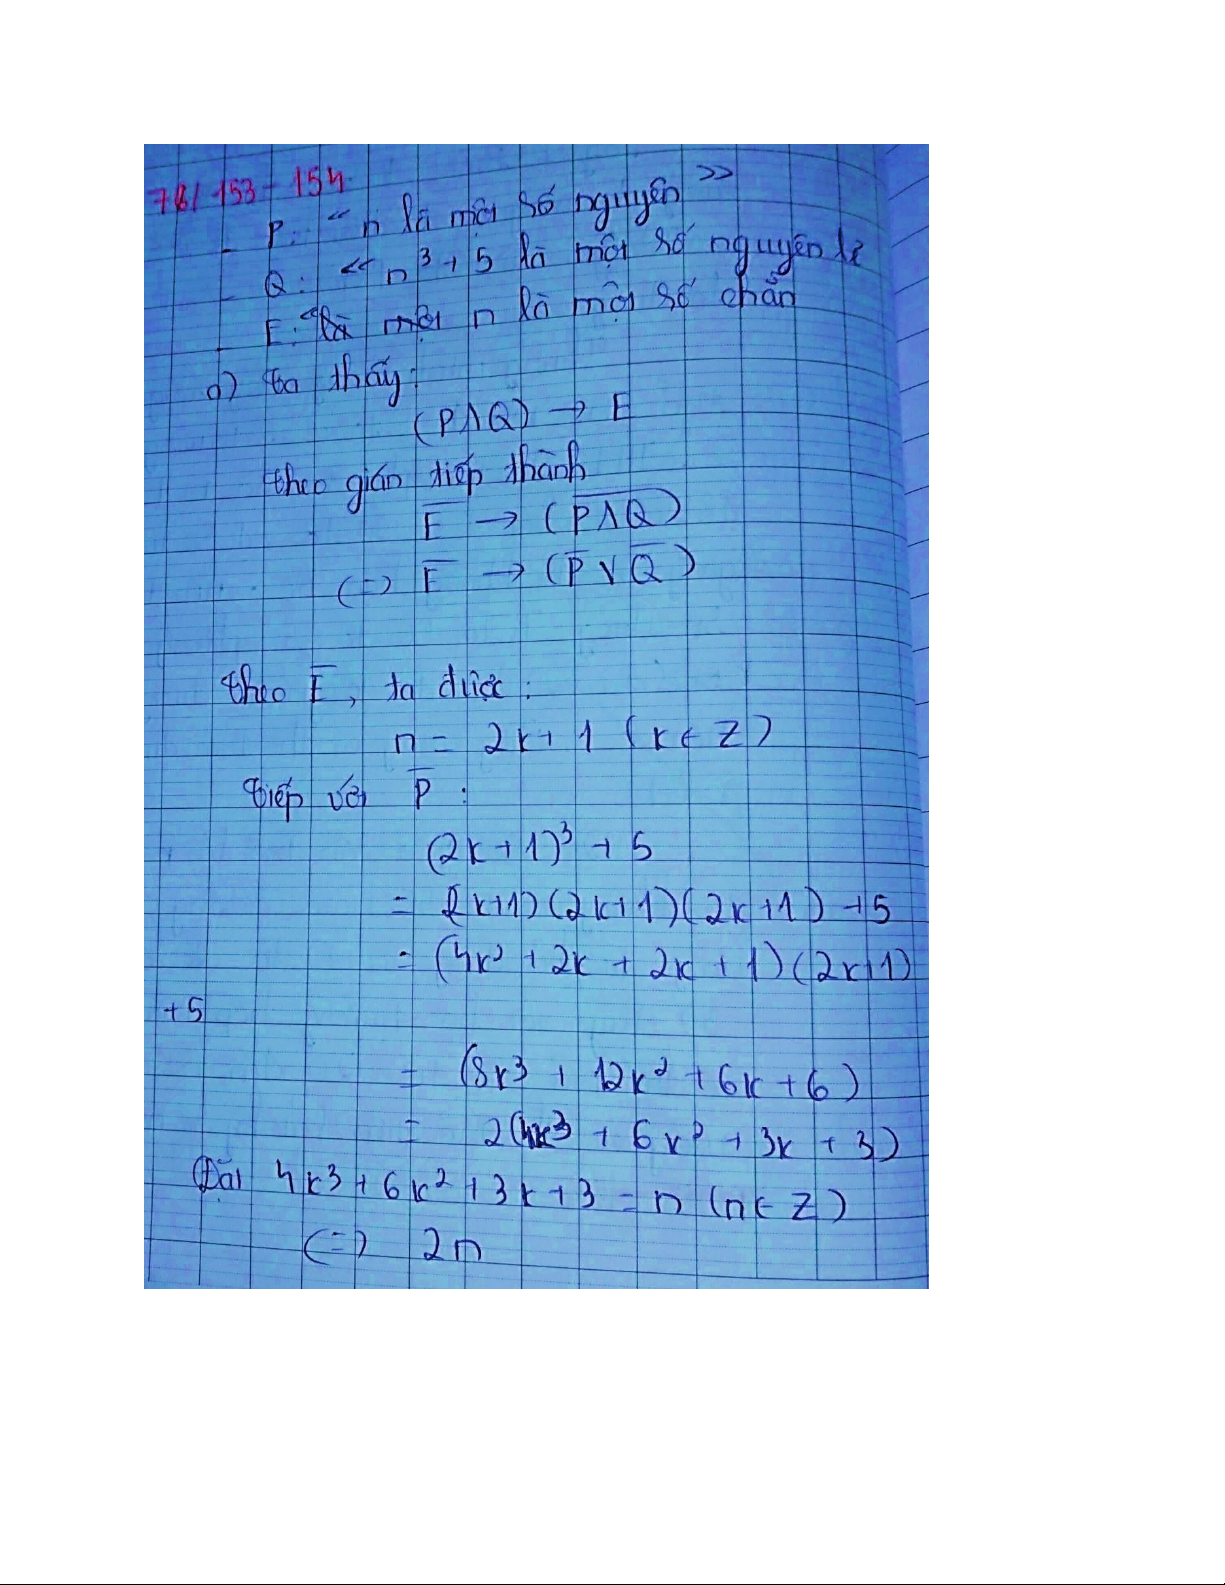 78/ 153 - 154
- P: "n là một số nguyên >>
- Q: << n³ + 5 là một số nguyên lẻ
- E: "là một n là một số chẵn
a) ta thấy:
(P∧Q) → E
theo gián tiếp thành
E̅ → (P̅∧̅Q̅)
(=) E̅ → (P̅ ∨ Q̅)
theo E̅, ta được:
n = 2k + 1 (k ∈ Z)
tiếp với P̅ :
(2k + 1)³ + 5
= (2k+1)(2k+1)(2k+1) + 5
= (4k² + 2k + 2k + 1)(2k+1)
+5
= (8k³ + 12k² + 6k + 6)
= 2(4k³ + 6k² + 3k + 3)
Đặt 4k³ + 6k² + 3k + 3 = n (n ∈ Z)
(=) 2n